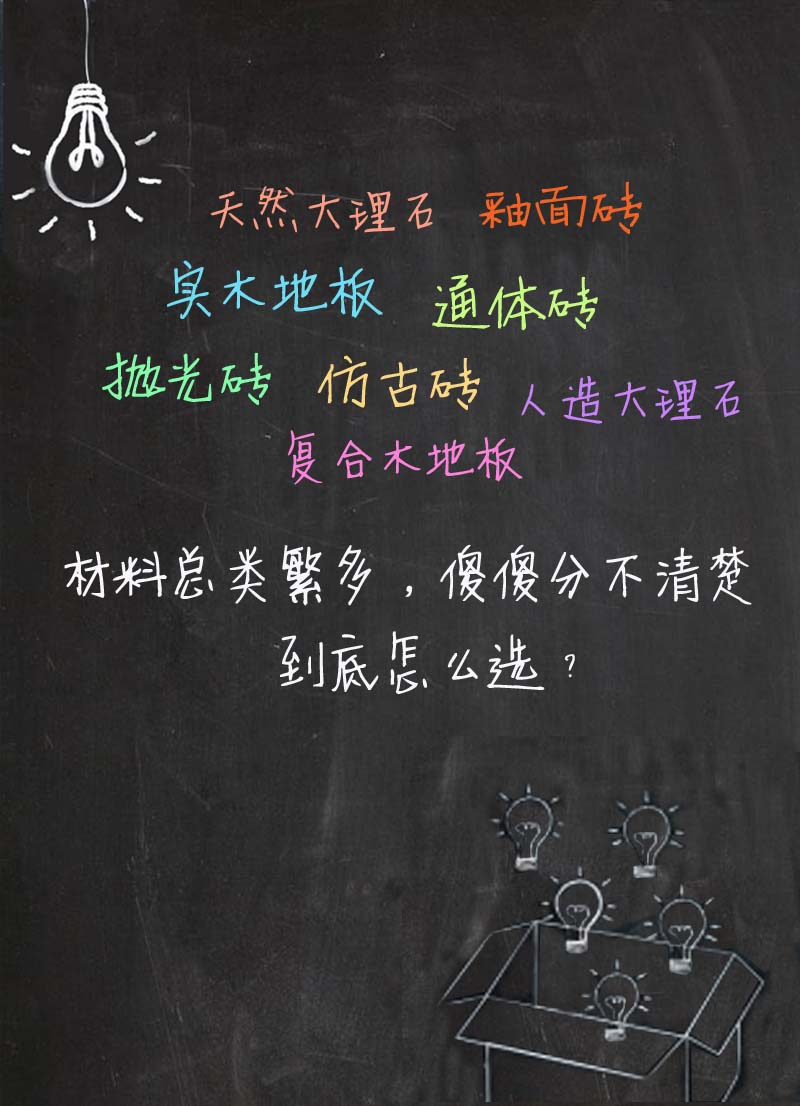 天然大理石 釉面砖
实木地板 通体砖
抛光砖 仿古砖 人造大理石
复合木地板
材料总类繁多，傻傻分不清楚
到底怎么选？